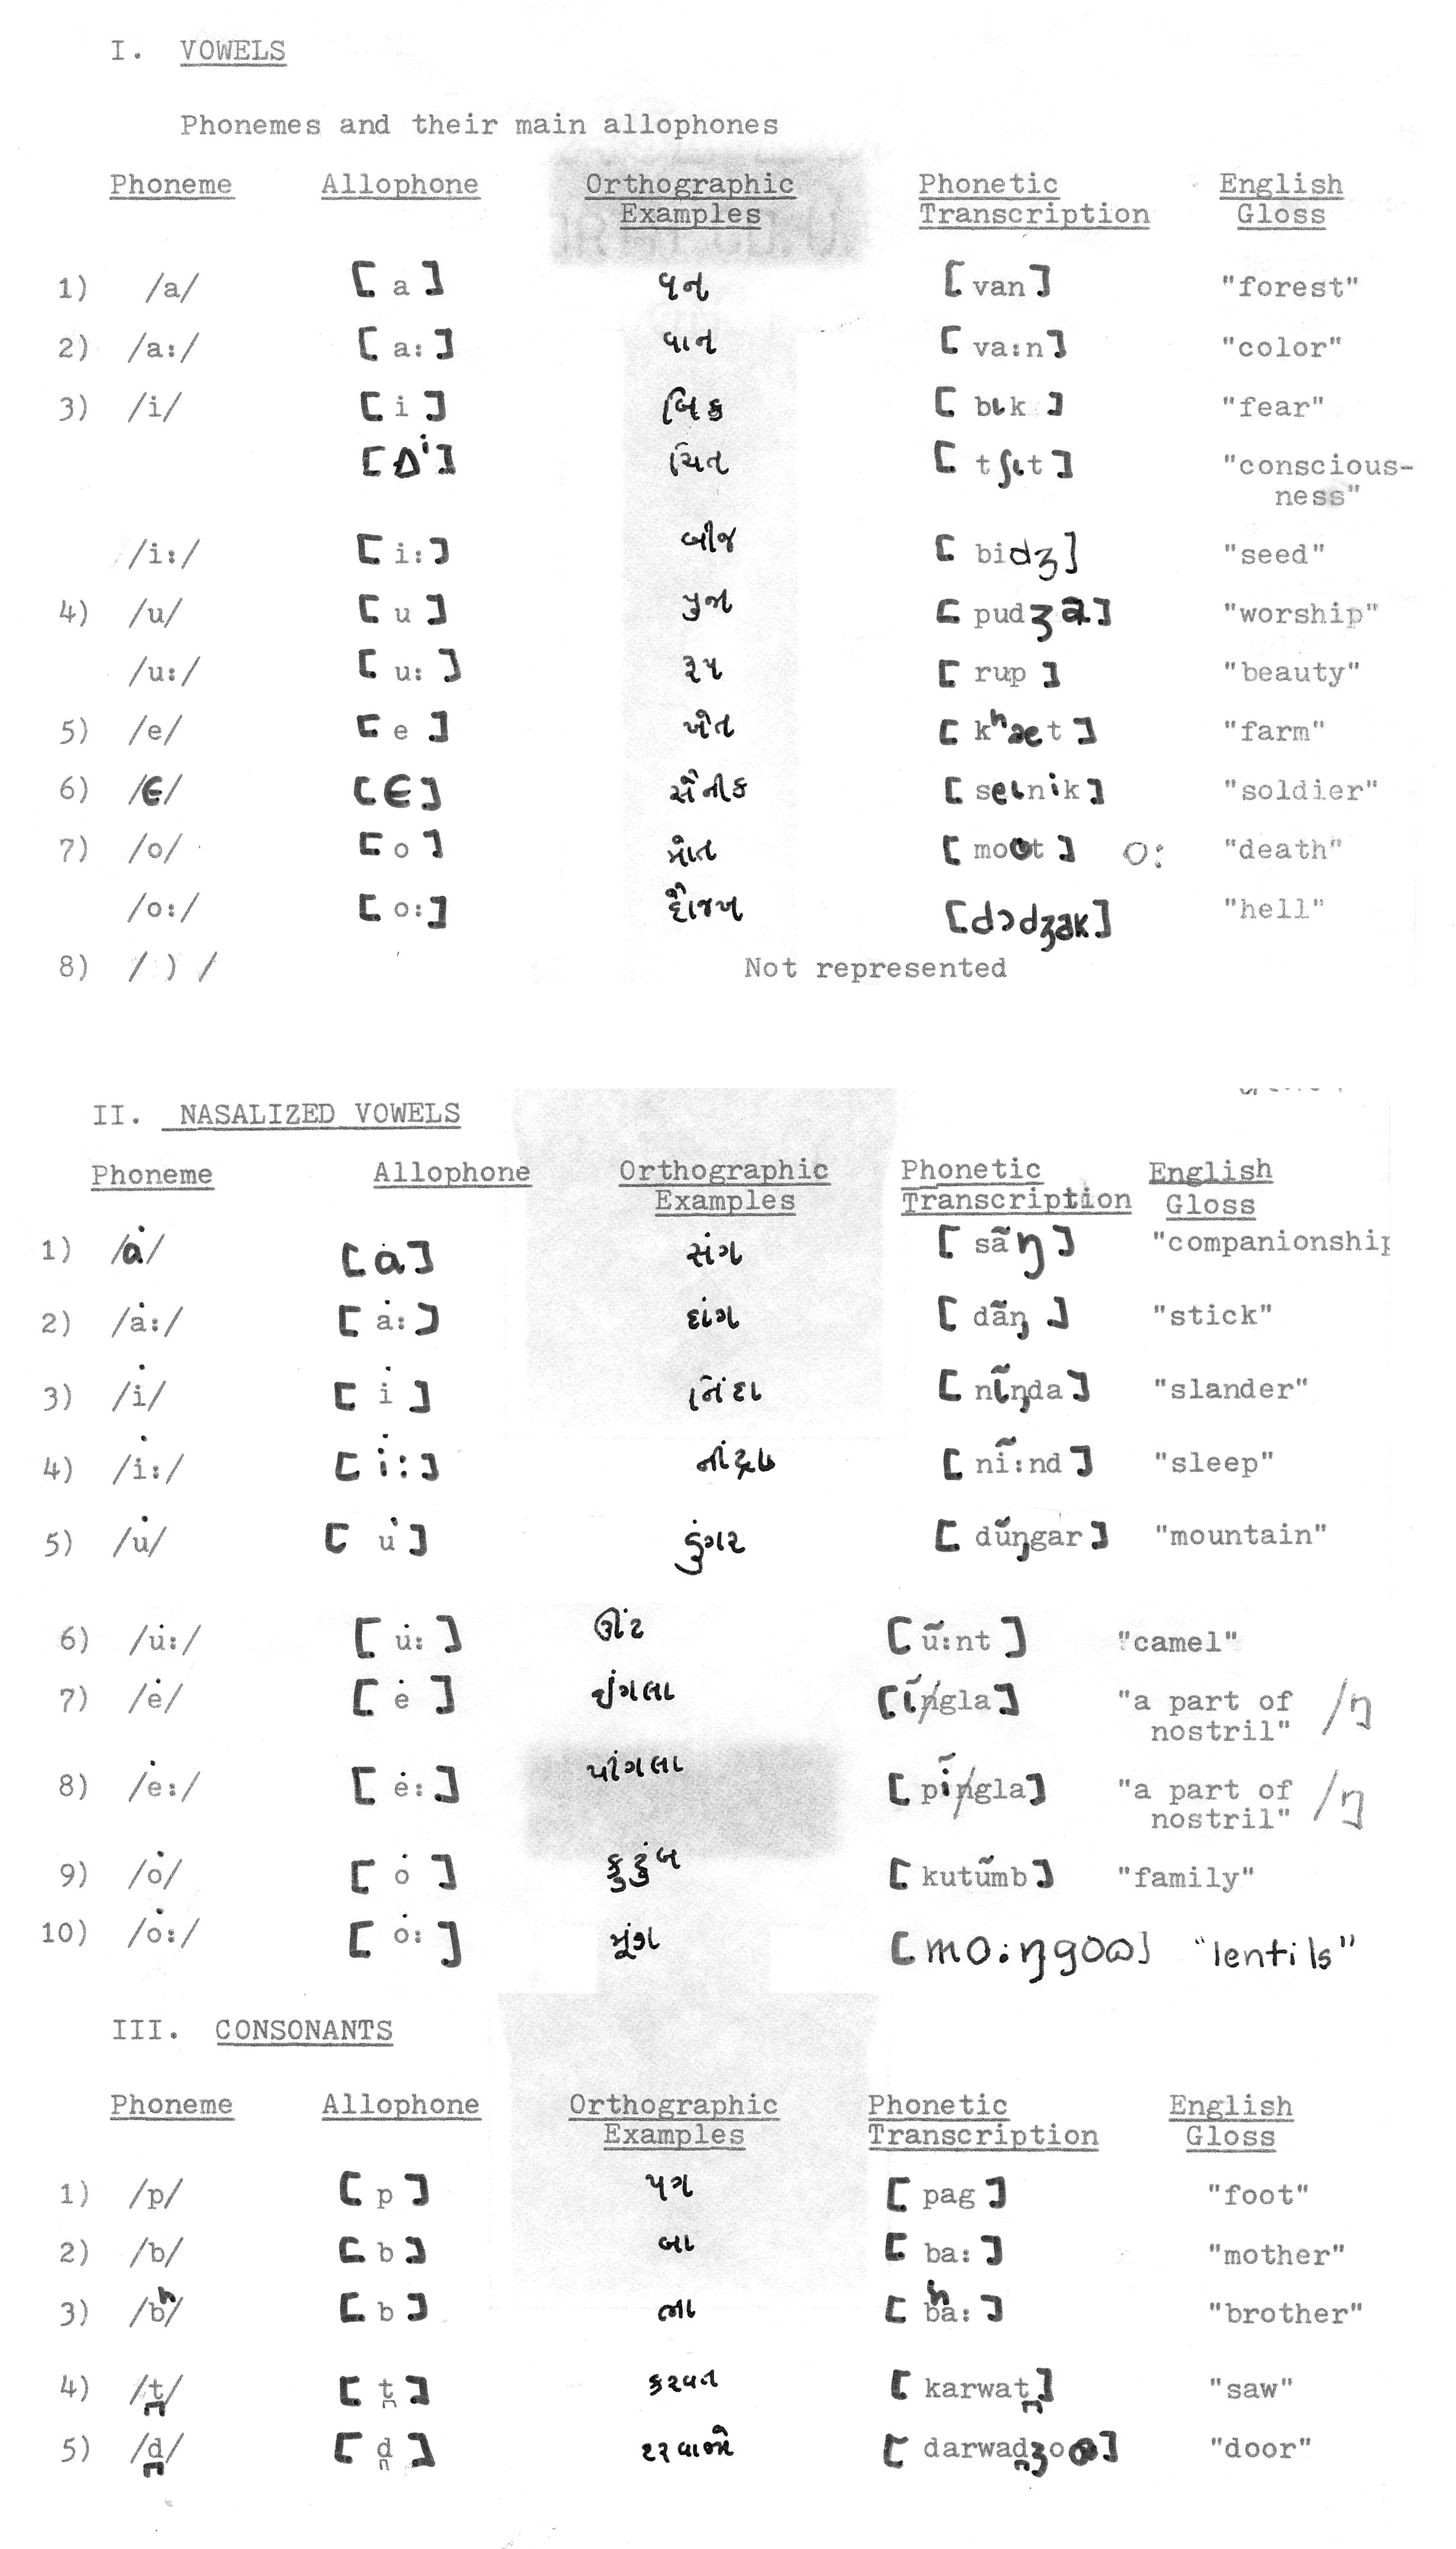 I. VOWELS
Phonemes and their main allophones
Phoneme Allophone Orthographic Examples Phonetic Transcription English Gloss
1) /a/ [a] વન [van] "forest"
2) /a:/ [a:] વાન [va:n] "color"
3) /i/ [i] બિક [bɩk] "fear"
ચિત [tʃɩt] "conscious-
ness"
/i:/ [i:] બીજ [bidʒ] "seed"
4) /u/ [u] પુજા [pudʒa] "worship"
/u:/ [u:] રૂપ [rup] "beauty"
5) /e/ [e] ખેત [kʰæt] "farm"
6) /ɛ/ [ɛ] સૈનીક [seɩnik] "soldier"
7) /o/ [o] મોત [moʊt] o: "death"
/o:/ [o:] દૌજખ [dɔdʒak] "hell"
8) / ) / Not represented
II. NASALIZED VOWELS
Phoneme Allophone Orthographic Examples Phonetic Transcription English Gloss
1) /ȧ/ [ȧ] સંગ [sãŋ] "companionship
2) /ȧ:/ [ȧ:] દાંગ [dãŋ] "stick"
3) /i̇/ [i̇] નિંદા [nĩŋda] "slander"
4) /i̇:/ [i̇:] [nĩ:nd] "sleep"
5) /u̇/ [u̇] ડુંગર [dũŋgar] "mountain"
6) /u̇:/ [u̇:] ઊંટ [ũ:nt] "camel"
7) /ė/ [ė] ઈંગલા [ĩngla] "a part of
nostril" /ŋ
8) /ė:/ [ė:] પીંગલા [pĩngla] "a part of
nostril" /ŋ
9) /ȯ/ [ȯ] કુટુંબ [kutũmb] "family"
10) /ȯ:/ [ȯ:] "lentils"
III. CONSONANTS
Phoneme Allophone Orthographic Examples Phonetic Transcription English Gloss
1) /p/ [p] પગ [pag] "foot"
2) /b/ [b] બા [ba:] "mother"
3) /bʰ/ [b] ભા [bʰa:] "brother"
4) /t̪/ [t̪] કરવત [karwat̪] "saw"
5) /d̪/ [d̪] દરવાજો "door"